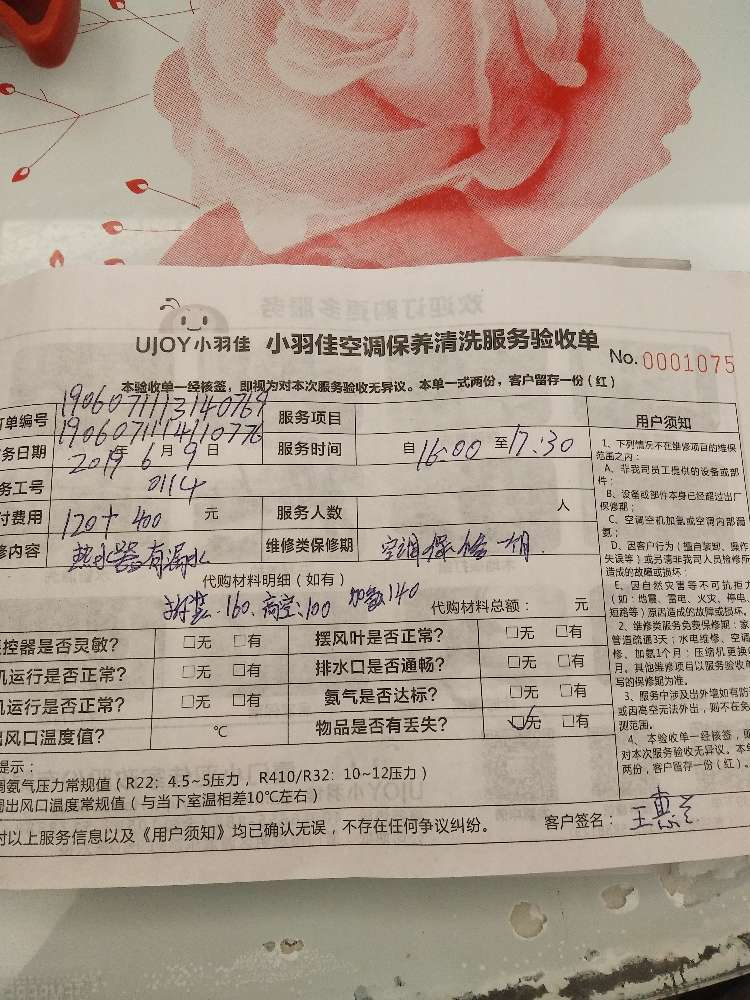 欢迎订购更多服务
UJOY小羽佳 小羽佳空调保养清洗服务验收单 No.0001075
本验收单一经核签，即视为对本次服务验收无异议。本单一式两份，客户留存一份（红）
订单编号 1906071113140769 服务项目
1906071114110776
务日期 2019年6月9日 服务时间 自16:00至17:30
务工号 0114
付费用 120+400 元 服务人数 人
修内容 热水器有漏水 维修类保修期 空调保修一个月.
代购材料明细（如有）
拆装.160.高空:100 加氨140 代购材料总额： 元
控器是否灵敏？ □无 □有 摆风叶是否正常？ □无 □有
机运行是否正常？ □无 □有 排水口是否通畅？ □无 □有
机运行是否正常？ □无 □有 氨气是否达标？ □无 □有
出风口温度值？ ℃ 物品是否有丢失？ ☑无 □有
提示：
调氨气压力常规值（R22：4.5~5压力，R410/R32：10~12压力）
调出风口温度常规值（与当下室温相差10℃左右）
对以上服务信息以及《用户须知》均已确认无误，不存在任何争议纠纷。 客户签名：王惠兰
用户须知
1、下列情况不在维修项目的维保
范围之内：
A、非我司员工提供的设备或部
件；
B、设备或部件本身已经超过出厂
保修期；
C、空调空机加氨或空调内部漏
氨；
D、因客户行为（擅自装卸、操作
失误等）或另请非我司人员检修所
造成的故障或损坏；
E、因自然灾害等不可抗拒力
（如：地震、雷电、火灾、停电、
短路等）原因造成的故障或损坏。
2、维修类服务免费保修期：家
管道疏通3天；水电维修、空调
修、加氨1个月；压缩机更换
月。其他维修项目以服务验收单
写的保修期为准。
3、服务中涉及出外墙如有防
或因高空无法外出，则不在免
测范围。
4、本验收单一经核签，即
对本次服务验收无异议。本单
两份，客户留存一份（红）。